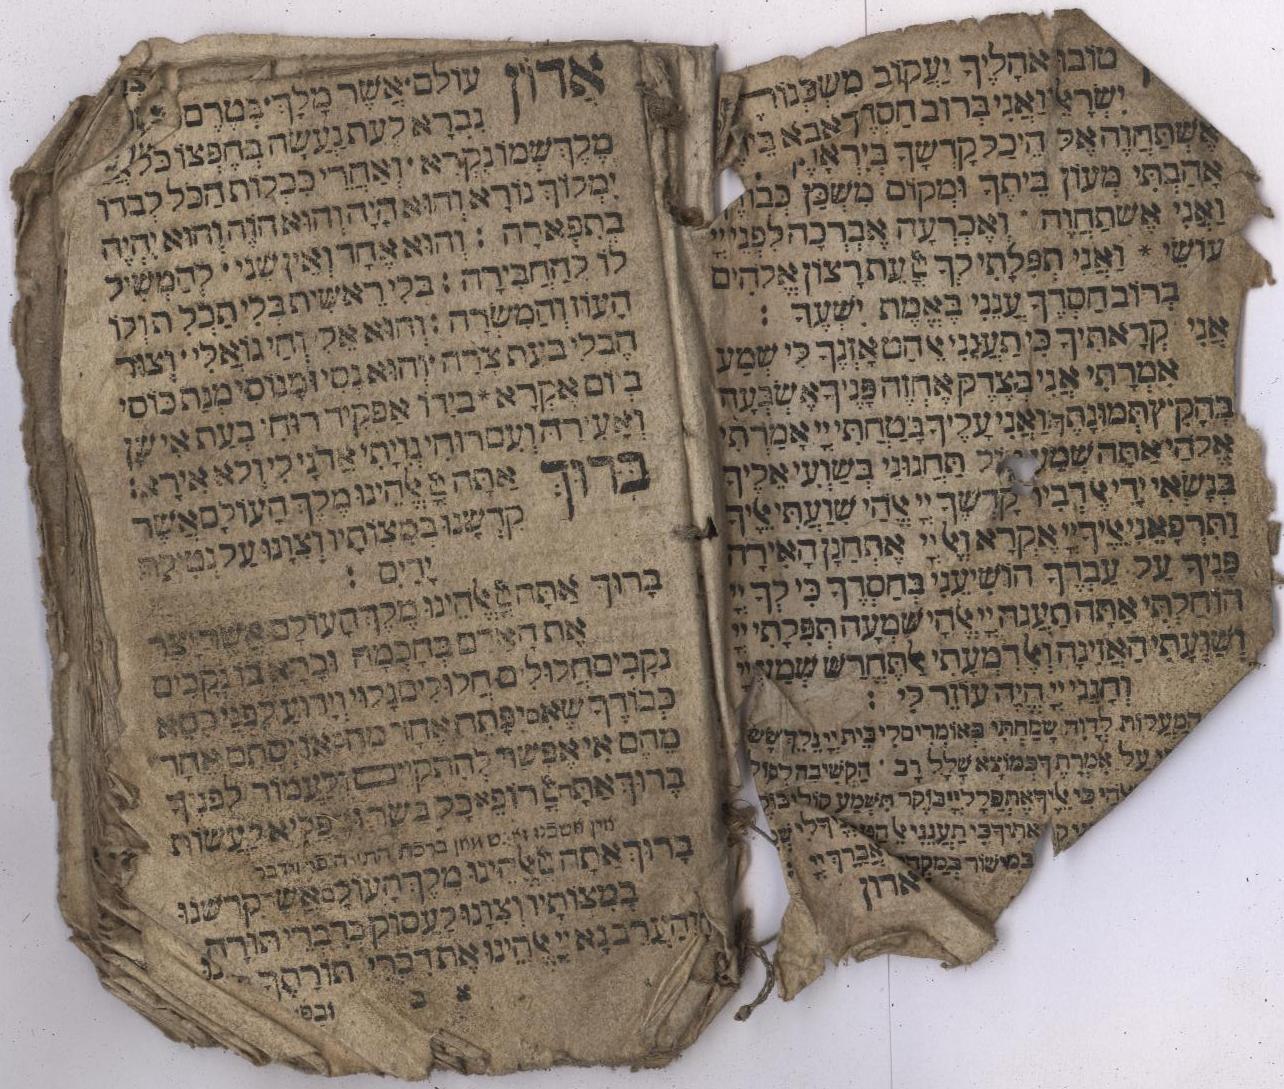 טוֹבוּ אֹהָלֶיךָ יַעֲקוֹב מִשְׁכְּנוֹתֶיךָ
יִשְׂרָאֵל וַאֲנִי בְּרוֹב חַסְדְּךָ אָבֹא בֵּיתֶךָ
אֶשְׁתַּחֲוֶה אֶל הֵיכַל קָדְשְׁךָ בְּיִרְאָתֶךָ
אָהַבְתִּי מְעוֹן בֵּיתֶךָ וּמְקוֹם מִשְׁכַּן כְּבוֹדֶךָ
וַאֲנִי אֶשְׁתַּחֲוֶה · וְאֶכְרָעָה אֶבְרְכָה לִפְנֵי יְיָ
עוֹשִׂי * וַאֲנִי תְפִלָּתִי לְךָ יְיָ עֵת רָצוֹן אֱלֹהִים
בְּרוֹב חַסְדֶּךָ עֲנֵנִי בֶּאֱמֶת יִשְׁעֶךָ :
אֲנִי קְרָאתִיךָ כִּי תַעֲנֵנִי אֵל הַט אָזְנְךָ לִי שְׁמַע
אִמְרָתִי אֲנִי בְּצֶדֶק אֶחֱזֶה פָנֶיךָ אֶשְׂבְּעָה
בְּהָקִיץ תְּמוּנָתֶךָ וַאֲנִי עָלֶיךָ בָטַחְתִּי יְיָ אָמַרְתִּי
אֱלֹהַי אַתָּה שְׁמַע קוֹל תַּחֲנוּנַי בְּשַׁוְּעִי אֵלֶיךָ
בְּנָשְׂאִי יָדַי אֶל דְּבִיר קָדְשֶׁךָ יְיָ אֱלֹהַי שִׁוַּעְתִּי אֵלֶיךָ
וַתִּרְפָּאֵנִי אֵלֶיךָ יְיָ אֶקְרָא וְאֶל יְיָ אֶתְחַנָּן הָאִירָה
פָּנֶיךָ עַל עַבְדֶּךָ הוֹשִׁיעֵנִי בְּחַסְדֶּךָ כִּי לְךָ יְיָ
הוֹחָלְתִּי אַתָּה תַעֲנֶה יְיָ אֱלֹהָי שִׁמְעָה תְפִלָּתִי יְיָ
וְשַׁוְעָתִי הַאֲזִינָה וְאֶל דִּמְעָתִי אַל תֶּחֱרַשׁ שְׁמַע יְיָ
וְחָנֵּנִי יְיָ הֱיֵה עוֹזֵר לִי :
הַמַּעֲלוֹת לְדָוִד שָׂמַחְתִּי בְּאוֹמְרִים לִי בֵּית יְיָ נֵלֵךְ שָׂשׂ
עַל אִמְרָתֶךָ כְּמוֹצֵא שָׁלָל רָב · הַקְשִׁיבָה לְקוֹל
כִּי אֵלֶיךָ אֶתְפַּלָּל יְיָ בּוֹקֶר תִּשְׁמַע קוֹלִי בּוֹקֶר
כִּי תַעֲנֵנִי אֵל
בְּמִישׁוֹר אֲבָרֵךְ יְיָ :
אדון
אֲדוֹן עוֹלָם אֲשֶׁר מָלַךְ בְּטֶרֶם
נִבְרָא לְעֵת נַעֲשָׂה בְחֶפְצוֹ כֹּל אֲזַי
מֶלֶךְ שְׁמוֹ נִקְרָא · וְאַחֲרֵי כִּכְלוֹת הַכֹּל לְבַדּוֹ
יִמְלוֹךְ נוֹרָא וְהוּא הָיָה וְהוּא הוֹוֶה וְהוּא יִהְיֶה
בְּתִפְאָרָה : וְהוּא אֶחָד וְאֵין שֵׁנִי · לְהַמְשִׁיל
לוֹ לְהַחְבִּירָה : בְּלִי רֵאשִׁית בְּלִי תַכְלִית וְלוֹ
הָעוֹז וְהַמִּשְׂרָה : וְהוּא אֵלִי וְחַי גּוֹאֲלִי וְצוּר
חֶבְלִי בְּעֵת צָרָה וְהוּא נִסִּי וּמָנוֹסִי מְנָת כּוֹסִי
בְּיוֹם אֶקְרָא * בְּיָדוֹ אַפְקִיד רוּחִי בְּעֵת אִישַׁן
וְאָעִירָה וְעִם רוּחִי גְוִיָּתִי אֲדֹנָי לִי וְלֹא אִירָא :
בָּרוּךְ אַתָּה יְיָ אֱלֹהֵינוּ מֶלֶךְ הָעוֹלָם אֲשֶׁר
קִדְּשָׁנוּ בְּמִצְוֹתָיו וְצִוָּנוּ עַל נְטִילַת
יָדַיִם :
בָּרוּךְ אַתָּה יְיָ אֱלֹהֵינוּ מֶלֶךְ הָעוֹלָם אֲשֶׁר יָצַר
אֶת הָאָדָם בְּחָכְמָה וּבָרָא בוֹ נְקָבִים
נְקָבִים חֲלוּלִים חֲלוּלִים גָּלוּי וְיָדוּעַ לִפְנֵי כִסֵּא
כְבוֹדֶךָ שֶׁאִם יִפָּתֵחַ אֶחָד מֵהֶם אוֹ יִסָּתֵם אֶחָד
מֵהֶם אִי אֶפְשָׁר לְהִתְקַיֵּים וְלַעֲמוֹד לְפָנֶיךָ
בָּרוּךְ אַתָּה יְיָ רוֹפֵא כָל בָּשָׂר וּמַפְלִיא לַעֲשׂוֹת
בָּרוּךְ אַתָּה יְיָ אֱלֹהֵינוּ מֶלֶךְ הָעוֹלָם אֲשֶׁר קִדְּשָׁנוּ
בְּמִצְוֹתָיו וְצִוָּנוּ לַעֲסוֹק בְּדִבְרֵי תוֹרָה
וְהַעֲרֶב נָא יְיָ אֱלֹהֵינוּ אֶת דִּבְרֵי תוֹרָתֶךָ
א ב ובפי